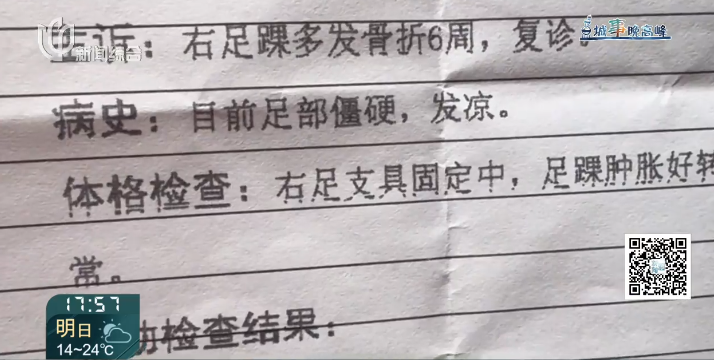 新闻综合
城事晚高峰
主诉：右足踝多发骨折6周，复诊。
病史：目前足部僵硬，发凉。
体格检查：右足支具固定中，足踝肿胀好转
常。
助检查结果：
17:57
明日
14~24℃